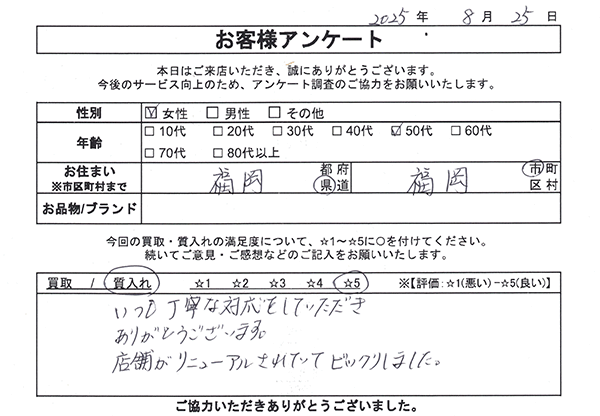 2025 年 8 月 25 日
お客様アンケート
本日はご来店いただき、誠にありがとうございます。
今後のサービス向上のため、アンケート調査のご協力をお願いいたします。
性別 ☑ 女性 □ 男性 □ その他
年齢 □ 10代 □ 20代 □ 30代 □ 40代 ☑ 50代 □ 60代
□ 70代 □ 80代以上
お住まい
※市区町村まで
福岡 都府県道 福岡 市町区村
お品物/ブランド
今回の買取・質入れの満足度について、☆1～☆5に○を付けてください。
続いてご意見・ご感想などのご記入をお願いいたします。
買取 / 質入れ ☆1 ☆2 ☆3 ☆4 ☆5 ※【評価：☆1(悪い)－☆5(良い)】
いつも丁寧な対応をしていただき
ありがとうございます。
店舗がリニューアルされていてビックリしました。
ご協力いただきありがとうございました。